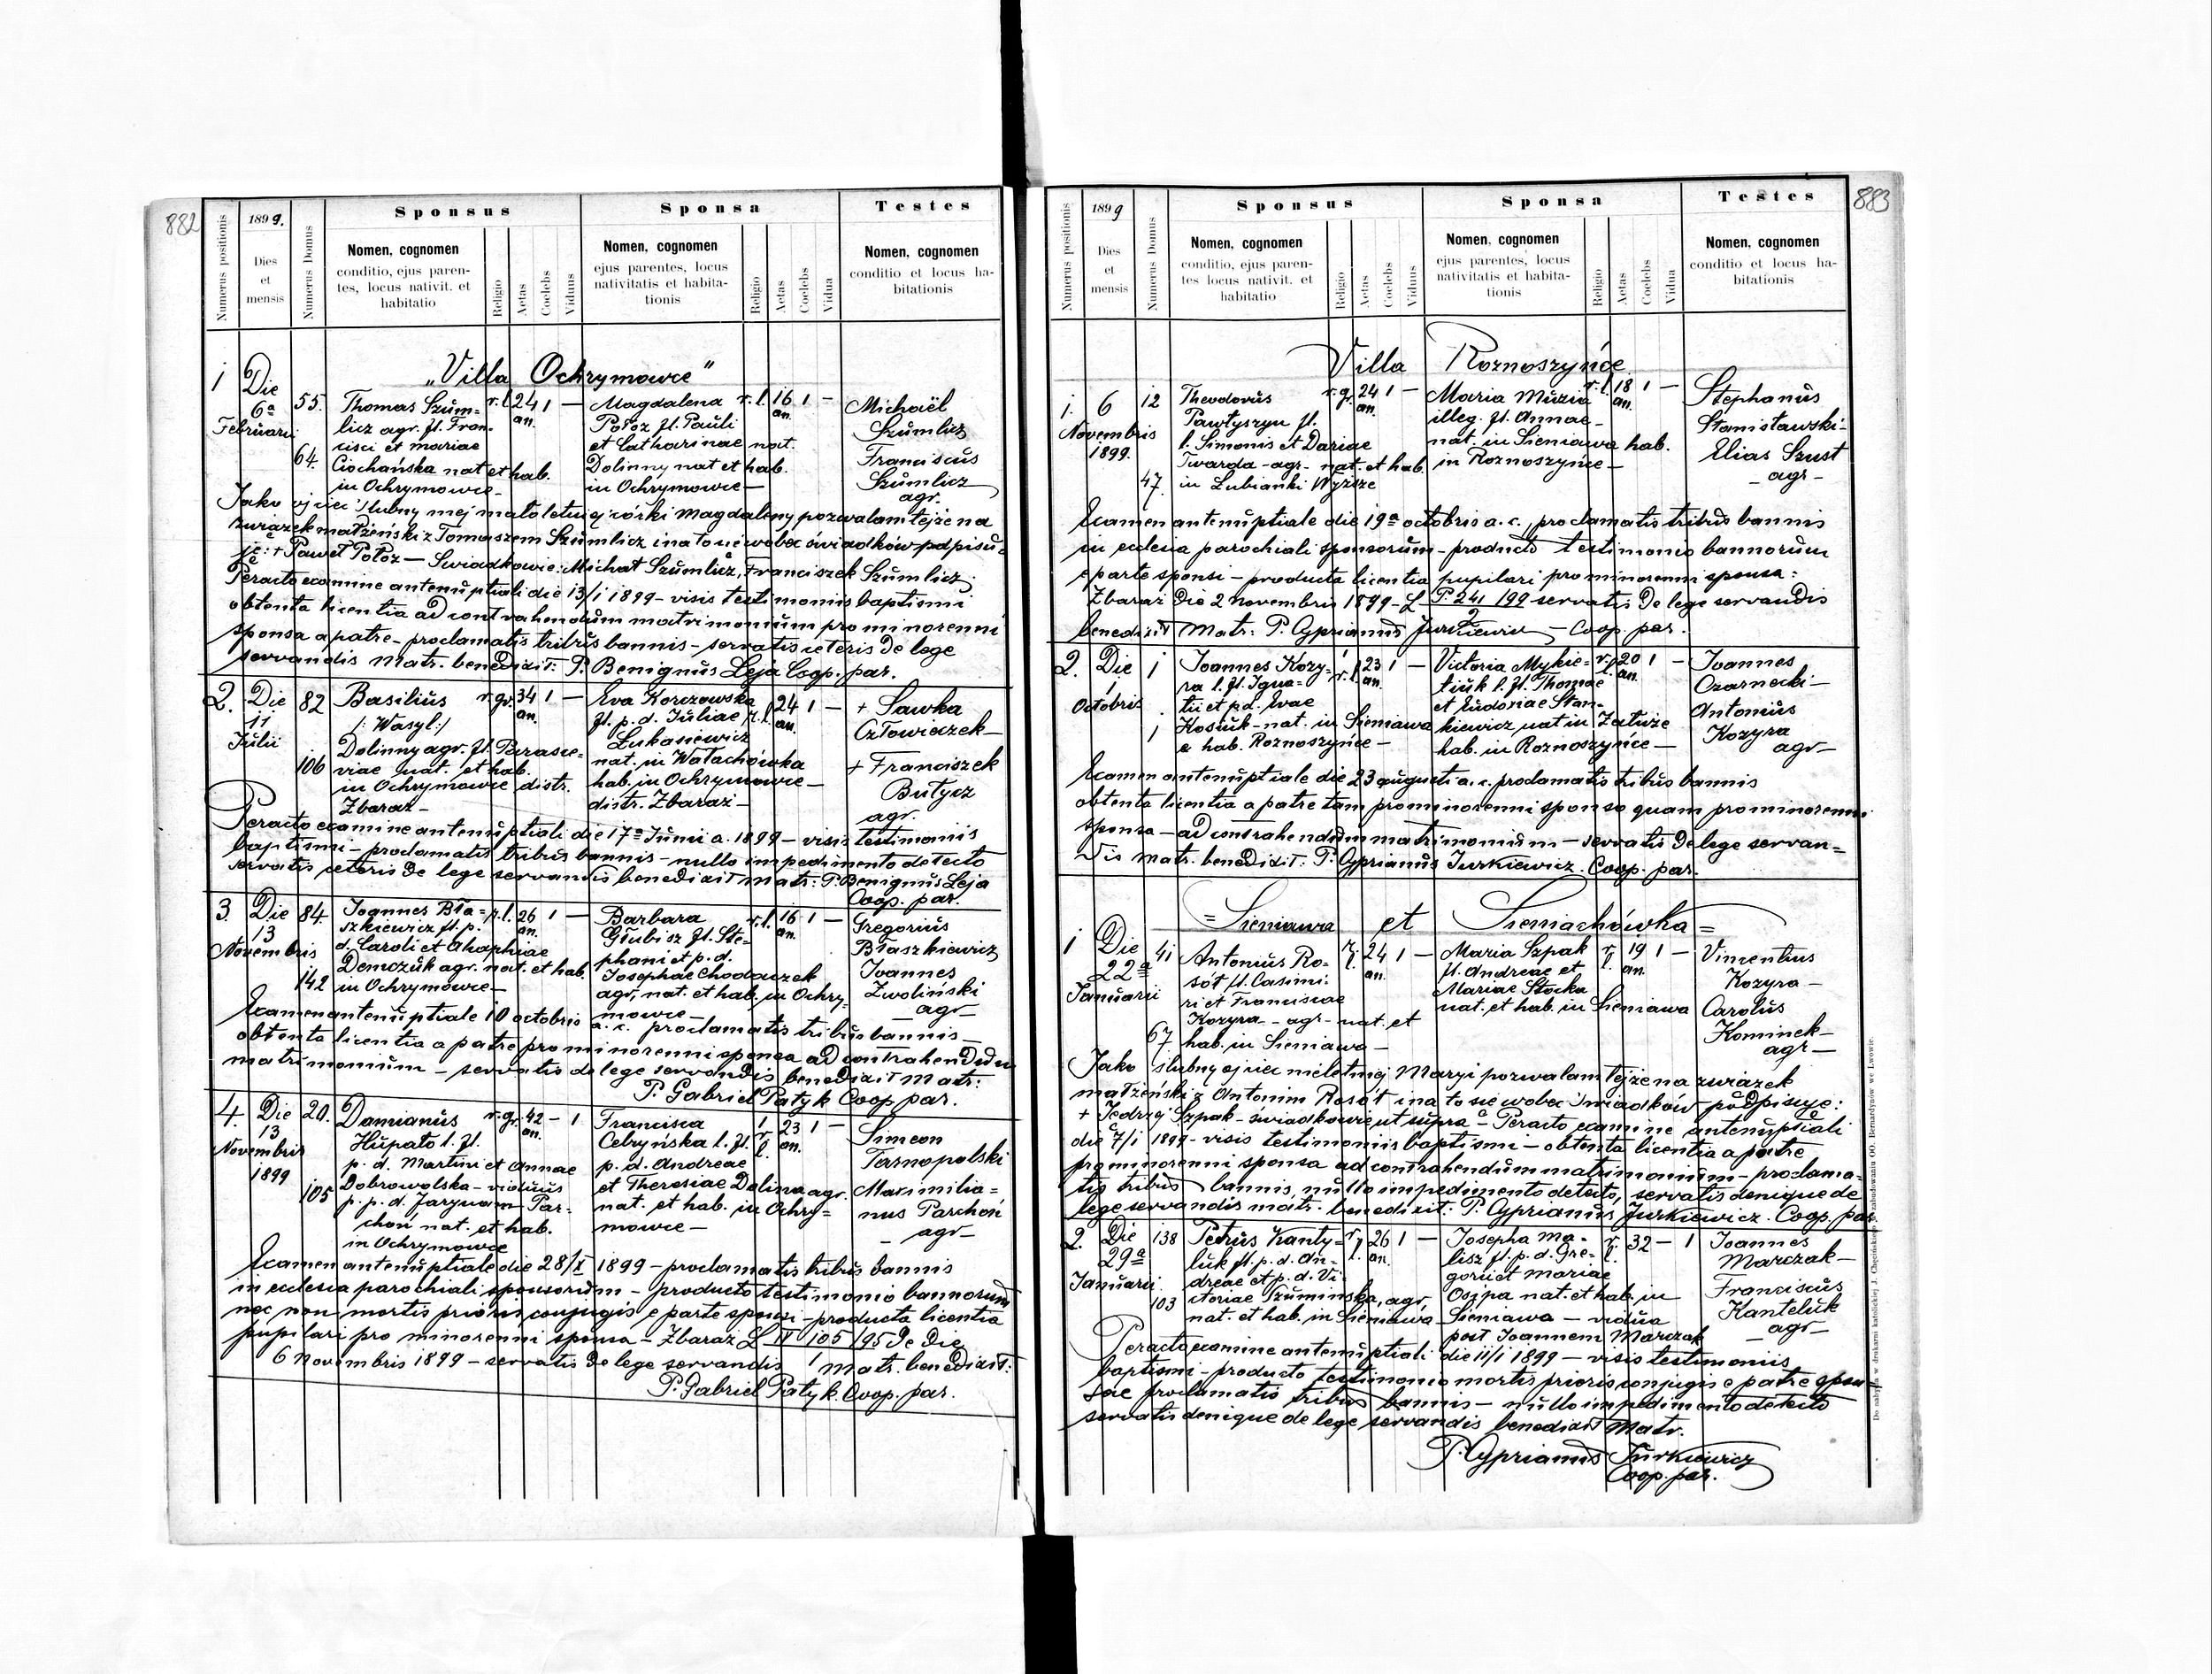 882
1899.
Numerus positionis
Dies
et
mensis
Numerus Domus
Sponsus
Nomen, cognomen
conditio, ejus paren-
tes, locus nativit. et
habitatio
Religio
Aetas
Coelebs
Viduus
Sponsa
Nomen, cognomen
ejus parentes, locus
nativitatis et habita-
tionis
Religio
Aetas
Coelebs
Vidua
Testes
Nomen, cognomen
conditio et locus ha-
bitationis
„Villa Ochrymowce"
1 Die
6a
Februarii
55.
64.
Thomas Szum=
licz agr. fl. Fran-
cisci et mariae
Ciochańska nat et hab.
in Ochrymowce-
r. l. 24 an. 1 —
Magdalena
Połoz fl. Pauli
et Catharinae nat.
Dolinny nat et hab.
in Ochrymowce —
r. l. 16 an. 1 —
Michaël
Szumlicz
Franciscus
Szumlicz
agr.
Jako ojciec ślubny mej małoletniej córki Magdaleny pozwalam tejże na
związek małżeński z Tomaszem Szumlicz i na to się wobec świadków podpisu=
ję: + Paweł Połoz — Swiadkowie: Michał Szumlicz, Franciszek Szumlicz
Peracto examine antenuptiali die 13/1 1899 - visis testimoniis baptismi
obtenta licentia ad contrahendum matrimonium pro minorenni
sponsa a patre - proclamatis tribus bannis - servatis ceteris de lege
servandis matr. benedixit: P. Benignus Leja Coop. par.
2. Die
11
Julii
82
106
Basilius
/: Wasyl :/
Dolinny agr. fl. Parasce=
viae nat. et hab.
in Ochrymowce distr.
Zbaraz -
r. gr. 34 an. 1 —
Eva Korczowska
fl. p. d. Juliae
Łukasiewicz
nat. in Wałachówka
hab. in Ochrymowce —
distr. Zbaraż —
r. l. 24 an. 1 —
+ Sawka
Człowieczek —
+ Franciszek
Butycz
agr.
Peracto examine antenuptiali die 17a Junii a. 1899 - visis testimoniis
baptismi - proclamatis tribus bannis - nullo impedimento detecto
servatis ceteris de lege servandis benedixit matr: P. Benignus Leja
Coop. par.
3. Die
13
Novembris
84
142
Joannes Bła=
szkiewicz fl. p.
d. Caroli et Ahaphiae
Demczuk agr. nat. et hab.
in Ochrymowce —
r. l. 26 an. 1 —
Barbara
Głubisz fl. Ste-
phani et p. d.
Josephae Chodaczek
agr, nat. et hab. in Ochry-
mowce —
r. l. 16 an. 1 —
Gregorius
Błaszkiewicz
Joannes
Zwoliński
— agr —
Examen antenuptiale 10 octobris a. c. proclamatis tribus bannis —
obtenta licentia a patre pro minorenni sponsa ad contrahendum
matrimonium - servatis de lege servandis benedixit matr:
P. Gabriel Patyk Coop. par.
4. Die
13
Novembris
1899
20.
105
Damianus
Hupało l. fl.
p. d. Martini et Annae
Dobrowolska - viduus
p. p. d. Jaryna Par-
choń nat. et hab.
in Ochrymowce
r. gr. 42 an. — 1
Francisca
Cebryńska l. fl.
p. d. Andreae
et Theresiae Dolina agr.
nat. et hab. in Ochry=
mowce —
r. l. 23 an. 1 —
Simeon
Tarnopolski
Maximilia=
nus Parchoń
— agr —
Examen antenuptiale die 28/X 1899 - proclamatis tribus bannis
in ecclesia parochiali sponsorum - producto testimonio bannorum
nec non mortis prioris conjugis e parte sponsi - producta licentia
pupilari pro minorenni sponsa - Zbaraz L IV 105/95 de die
6 Novembris 1899 - servatis de lege servandis matr. benedixit:
P. Gabriel Patyk Coop. par.
883
1899
Numerus positionis
Dies
et
mensis
Numerus Domus
Sponsus
Nomen, cognomen
conditio, ejus paren-
tes locus nativit. et
habitatio
Religio
Aetas
Coelebs
Viduus
Sponsa
Nomen, cognomen
ejus parentes, locus
nativitatis et habita-
tionis
Religio
Aetas
Coelebs
Vidua
Testes
Nomen, cognomen
conditio et locus ha-
bitationis
Villa Roznoszyńce
1. 6
Novembris
1899.
12
47.
Theodorus
Pawłyszyn fl.
l. Simonis et Dariae
Twarda - agr - nat. et hab.
in Lubianki Wyższe
r. g. 24 an. 1 —
Maria Muzia
illeg. fl. Annae -
nat. in Sieniawa hab.
in Roznoszyńce —
r. l. 18 an. 1 —
Stephanus
Stanisławski -
Elias Szust
— agr —
Examen antenuptiale die 19a octobris a. c., proclamatis tribus bannis
in ecclesia parochiali sponsorum - producto testimonio bannorum
e parte sponsi - producta licentia pupilari pro minorenni sponsa:
Zbaraż die 2 novembris 1899 - L P. 241/99 servatis de lege servandis
2
benedixit Matr: P. Cyprianus Jurkiewicz — Coop. par.
2. Die
1
Octobris
1
1
Joannes Kozy=
ra l. fl. Igna=
tii et p.d. Evae
Kosiuk - nat. in Sieniawa
e hab. Roznoszyńce —
r. l. 23 an. 1 —
Victoria Mykie=
tiuk l. fl. Thomae
et Eudoxiae Stan-
kiewicz nat in Załuże
hab. in Roznoszyńce —
r. l. 20 an. 1 —
Joannes
Czarnecki —
Antonius
Kozyra
agr —
Examen antenuptiale die 23 augusti a. c. proclamatis tribus bannis
obtenta licentia a patre tam pro minorenni sponso quam pro minorenni
sponsa — ad contrahendum matrimonium — servatis de lege servan=
dis matr. benedixit: P. Cyprianus Jurkiewicz. Coop. par.
= Sieniawa et Sieniachówka =
1 Die
22a
Januarii
41
67
Antonius Ro=
sół fl. Casimi:
ri et Franciscae
Kozyra - agr - nat. et
hab. in Sieniawa —
r. l. 24 an. 1 —
Maria Szpak
fl. Andreae et
Mariae Słocka
nat. et hab. in Sieniawa
r. l. 19 an. 1 —
Vincentius
Kozyra —
Carolus
Kominek —
agr —
Jako ślubny ojciec nieletniej Maryi pozwalam tejże na związek
małżeński z Antonim Rosół i na to się wobec świadków podpisuję:
+ Jędrzej Szpak - świadkowie ut supra - Peracto examine antenuptiali
die 7/1 1899 - visis testimoniis baptismi - obtenta licentia a patre
pro minorenni sponsa ad contrahendum matrimonium - proclama=
tis tribus bannis, nullo impedimento detecto, servatis denique de
lege servandis matr. benedixit: P. Cyprianus Jurkiewicz. Coop. par
2. Die
29a
Januarii
138
103
Petrus Kanty=
luk fl. p. d. An-
dreae et p. d. Vi-
ctoriae Szumińska, agr,
nat. et hab. in Sieniawa
r. l. 26 an. 1 —
Josepha Ma=
lisz fl. p. d. Gre-
gorii et Mariae
Osipa nat. et hab. in
Sieniawa — vidua
post Joannem Marczak
r. l. 32 — 1
Joannes
Marczak —
Franciscus
Kanteluk
— agr —
Peracto examine antenuptiali die 11/1 1899 — visis testimoniis
baptismi - producto testimonio mortis prioris conjugis e parte spon=
sae proclamatis tribus bannis — nullo impedimento detecto
servatis denique de lege servandis benedixit Matr.
P. Cyprianus Jurkiewicz
Coop. par.